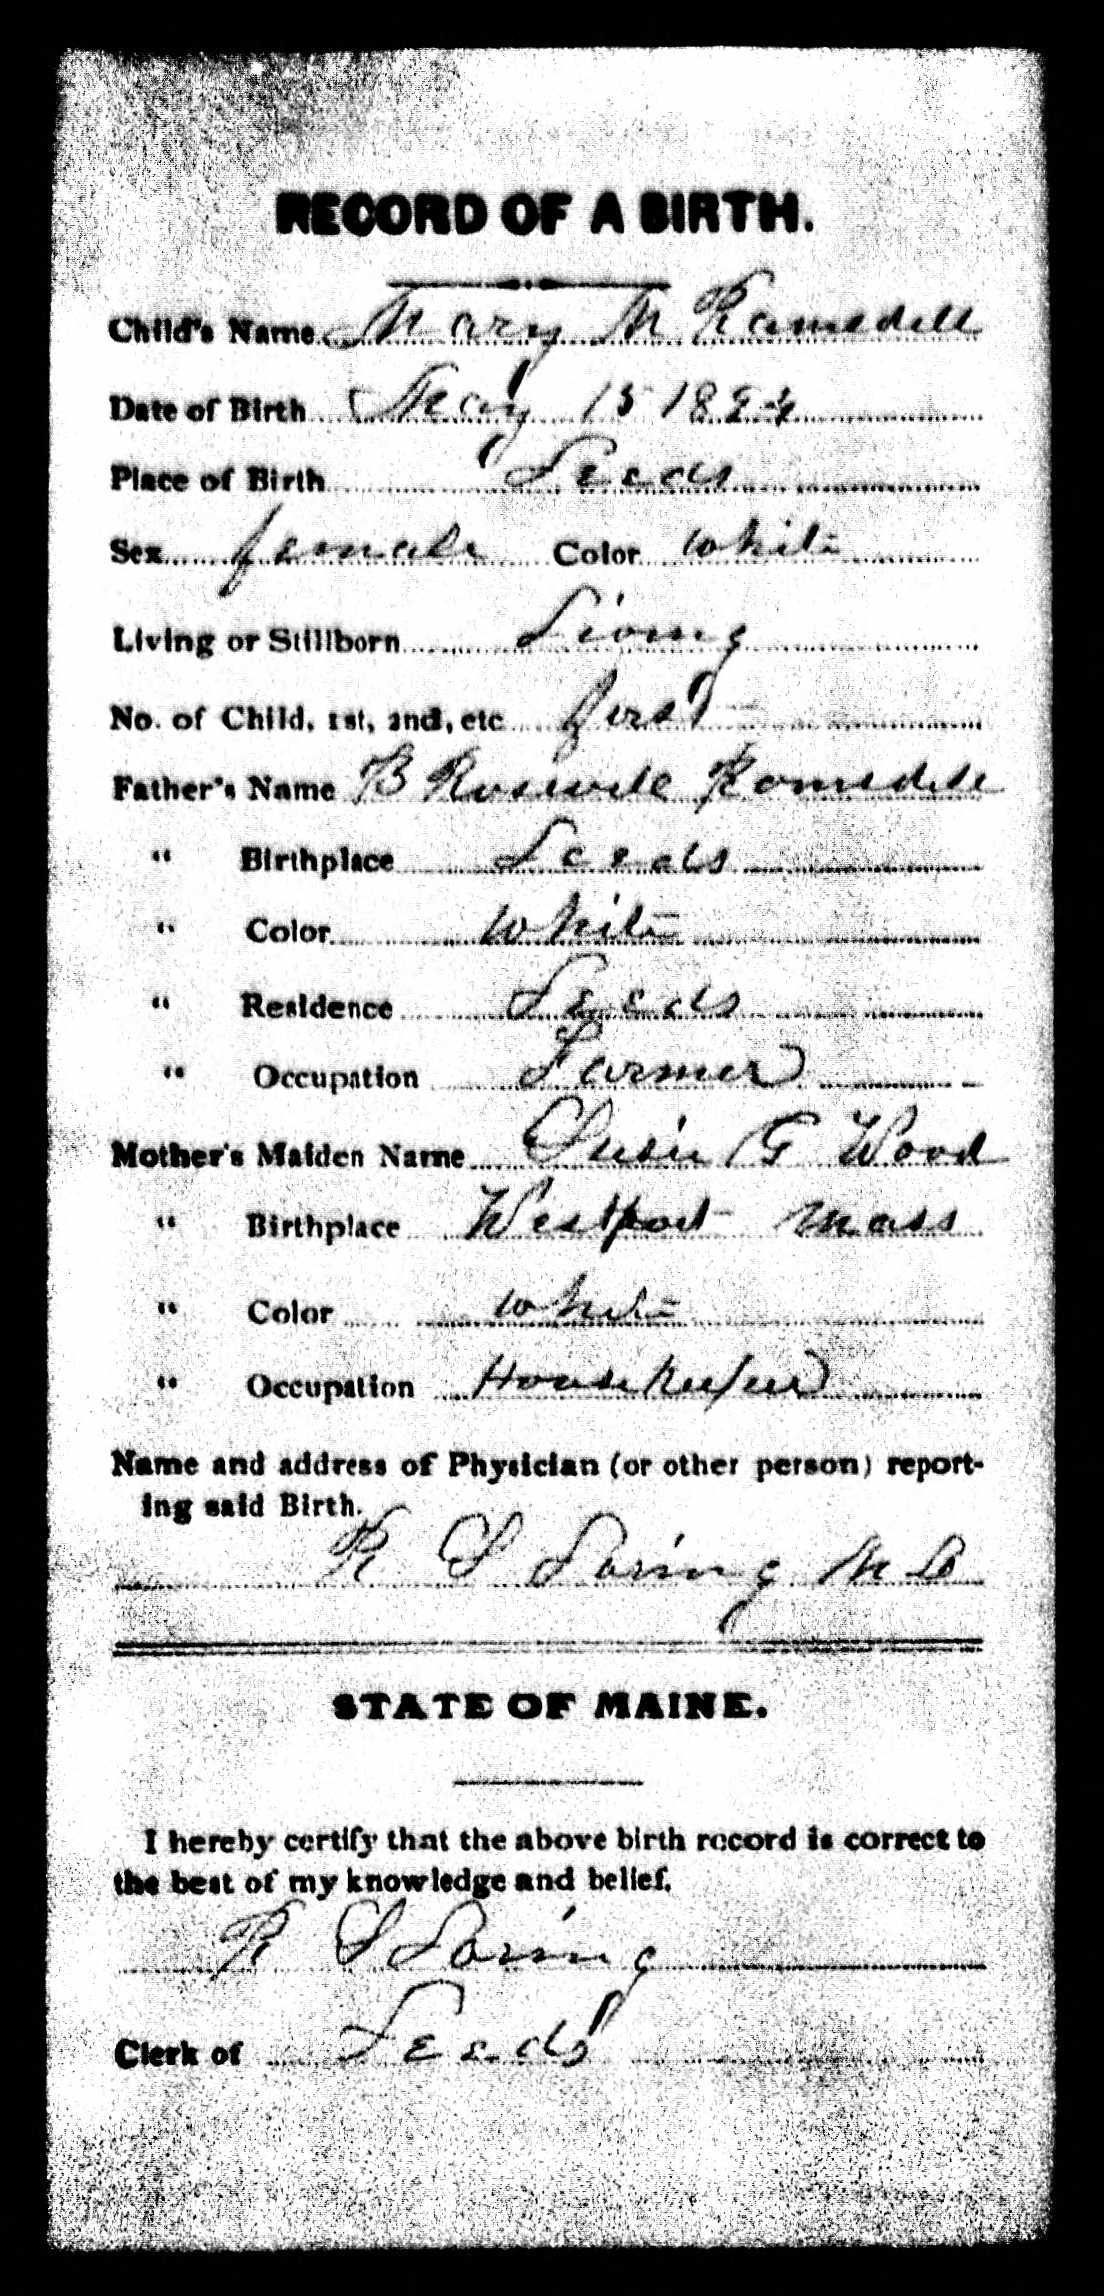 RECORD OF A BIRTH.
Child's Name Mary M Ramsdell
Date of Birth May 15 1894
Place of Birth Leeds
Sex female Color White
Living or Stillborn Living
No. of Child, 1st, 2nd, etc first
Father's Name B Roswell Ramsdell
" Birthplace Leeds
" Color White
" Residence Leeds
" Occupation Farmer
Mother's Maiden Name Susie G Wood
" Birthplace Westport Mass
" Color White
" Occupation Housekeeper
Name and address of Physician (or other person) report-
ing said Birth.
R S Loring M D
STATE OF MAINE.
I hereby certify that the above birth record is correct to
the best of my knowledge and belief.
R S Loring
Clerk of Leeds